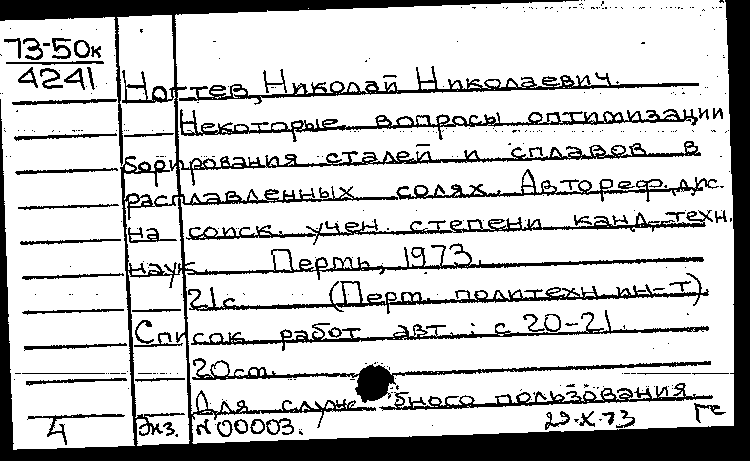 73-50к
4241
Ногтев, Николай Николаевич.
Некоторые вопросы оптимизации
борирования сталей и сплавов в
расплавленных солях. Автореф. дис.
на соиск. учен. степени канд. техн.
наук. Пермь, 1973.
21с. (Перм. политехн. ин-т).
Список работ авт.: с 20-21.
20см.
Для служебного пользования.
4 Экз. N 00003. 29.X.73 Гс